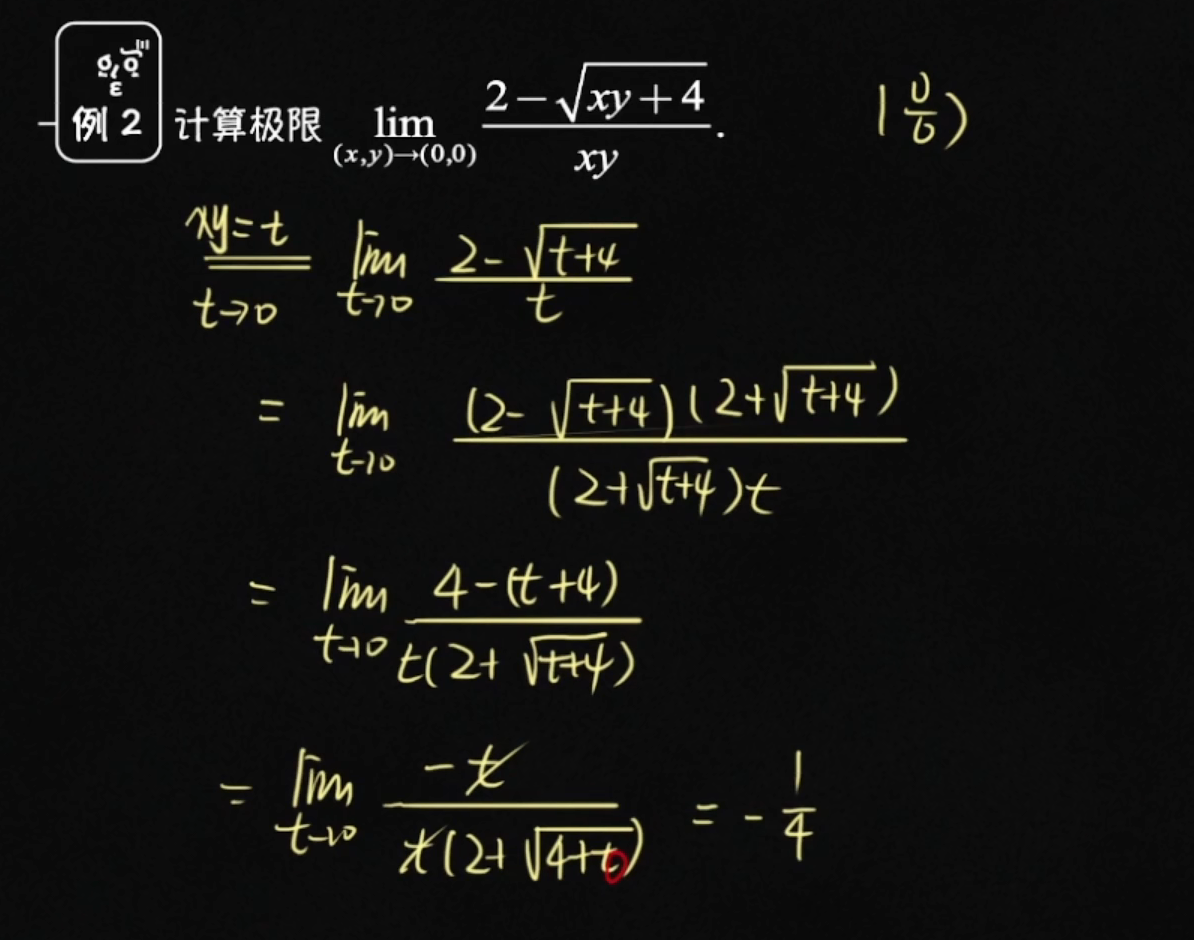 例 2 计算极限 lim (x,y)→(0,0) (2−√(xy+4))/(xy). (0/0)
xy=t, t→0 lim t→0 (2-√(t+4))/t
= lim t→0 ((2-√(t+4))(2+√(t+4)))/((2+√(t+4))t)
= lim t→0 (4-(t+4))/(t(2+√(t+4)))
= lim t→0 (-t)/(t(2+√(4+t))) = -1/4